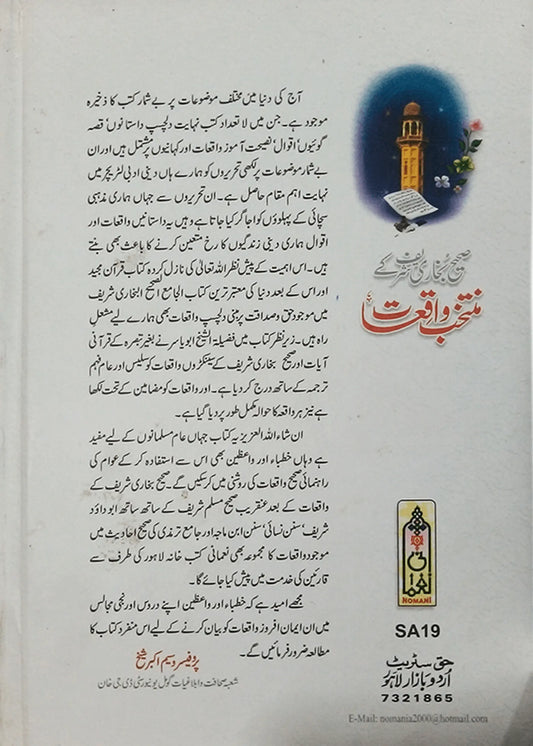 آج کی دنیا میں مختلف موضوعات پر بے شمار کتب کا ذخیرہ
موجود ہے۔ جن میں لا تعداد کتب نہایت دلچسپ داستانوں‘ قصہ
گوئیوں‘ اقوال‘ نصیحت آموز واقعات اور کہانیوں پر مشتمل ہیں اور ان
بے شمار موضوعات پر لکھی تحریروں کو ہمارے ہاں دینی ادبی لٹریچر میں
نہایت اہم مقام حاصل ہے۔ ان تحریروں سے جہاں ہماری مذہبی
سچائی کے پہلوؤں کو اجاگر کیا جاتا ہے وہیں یہ داستانیں واقعات اور
اقوال ہماری دینی زندگیوں کا رخ متعین کرنے کا باعث بھی بنتے
ہیں۔ اس اہمیت کے پیش نظر اللہ تعالیٰ کی نازل کردہ کتاب قرآن مجید
اور اس کے بعد دنیا کی معتبر ترین کتاب الجامع الصحیح البخاری شریف
میں موجود حق و صداقت پر مبنی دلچسپ واقعات بھی ہمارے لیے مشعل
راہ ہیں۔ زیر نظر کتاب میں فضیلۃ الشیخ ابو یاسر نے بغیر تبصرہ کے قرآنی
آیات اور صحیح بخاری شریف کے سینکڑوں واقعات کو سلیس اور عام فہم
ترجمہ کے ساتھ درج کر دیا ہے۔ اور واقعات کو مضامین کے تحت لکھا
ہے نیز ہر واقعہ کا حوالہ مکمل طور پر دیا گیا ہے۔
ان شاء اللہ العزیز یہ کتاب جہاں عام مسلمانوں کے لیے مفید
ہے وہاں خطباء اور واعظین بھی اس سے استفادہ کر کے عوام کی
راہنمائی صحیح واقعات کی روشنی میں کر سکیں گے۔ صحیح بخاری شریف کے
واقعات کے بعد عنقریب صحیح مسلم شریف کے ساتھ ساتھ ابو داؤد
شریف‘ سنن نسائی‘ سنن ابن ماجہ اور جامع ترمذی کی صحیح احادیث میں
موجود واقعات کا مجموعہ بھی نعمانی کتب خانہ لاہور کی طرف سے
قارئین کی خدمت میں پیش کیا جائے گا۔
مجھے امید ہے کہ خطباء اور واعظین اپنے دروس اور نجی مجالس
میں ان ایمان افروز واقعات کو بیان کرنے کے لیے اس منفرد کتاب کا
مطالعہ ضرور فرمائیں گے۔
پروفیسر وسیم اکبر شیخ
شعبہ صحافت و ابلاغیات گومل یونیورسٹی ڈی جی خان
صحیح بخاری شریف کے
منتخب واقعات
NOMANI
SA19
حق سٹریٹ
اردو بازار لاہور
7321865
E-Mail: nomania2000@hotmail.com